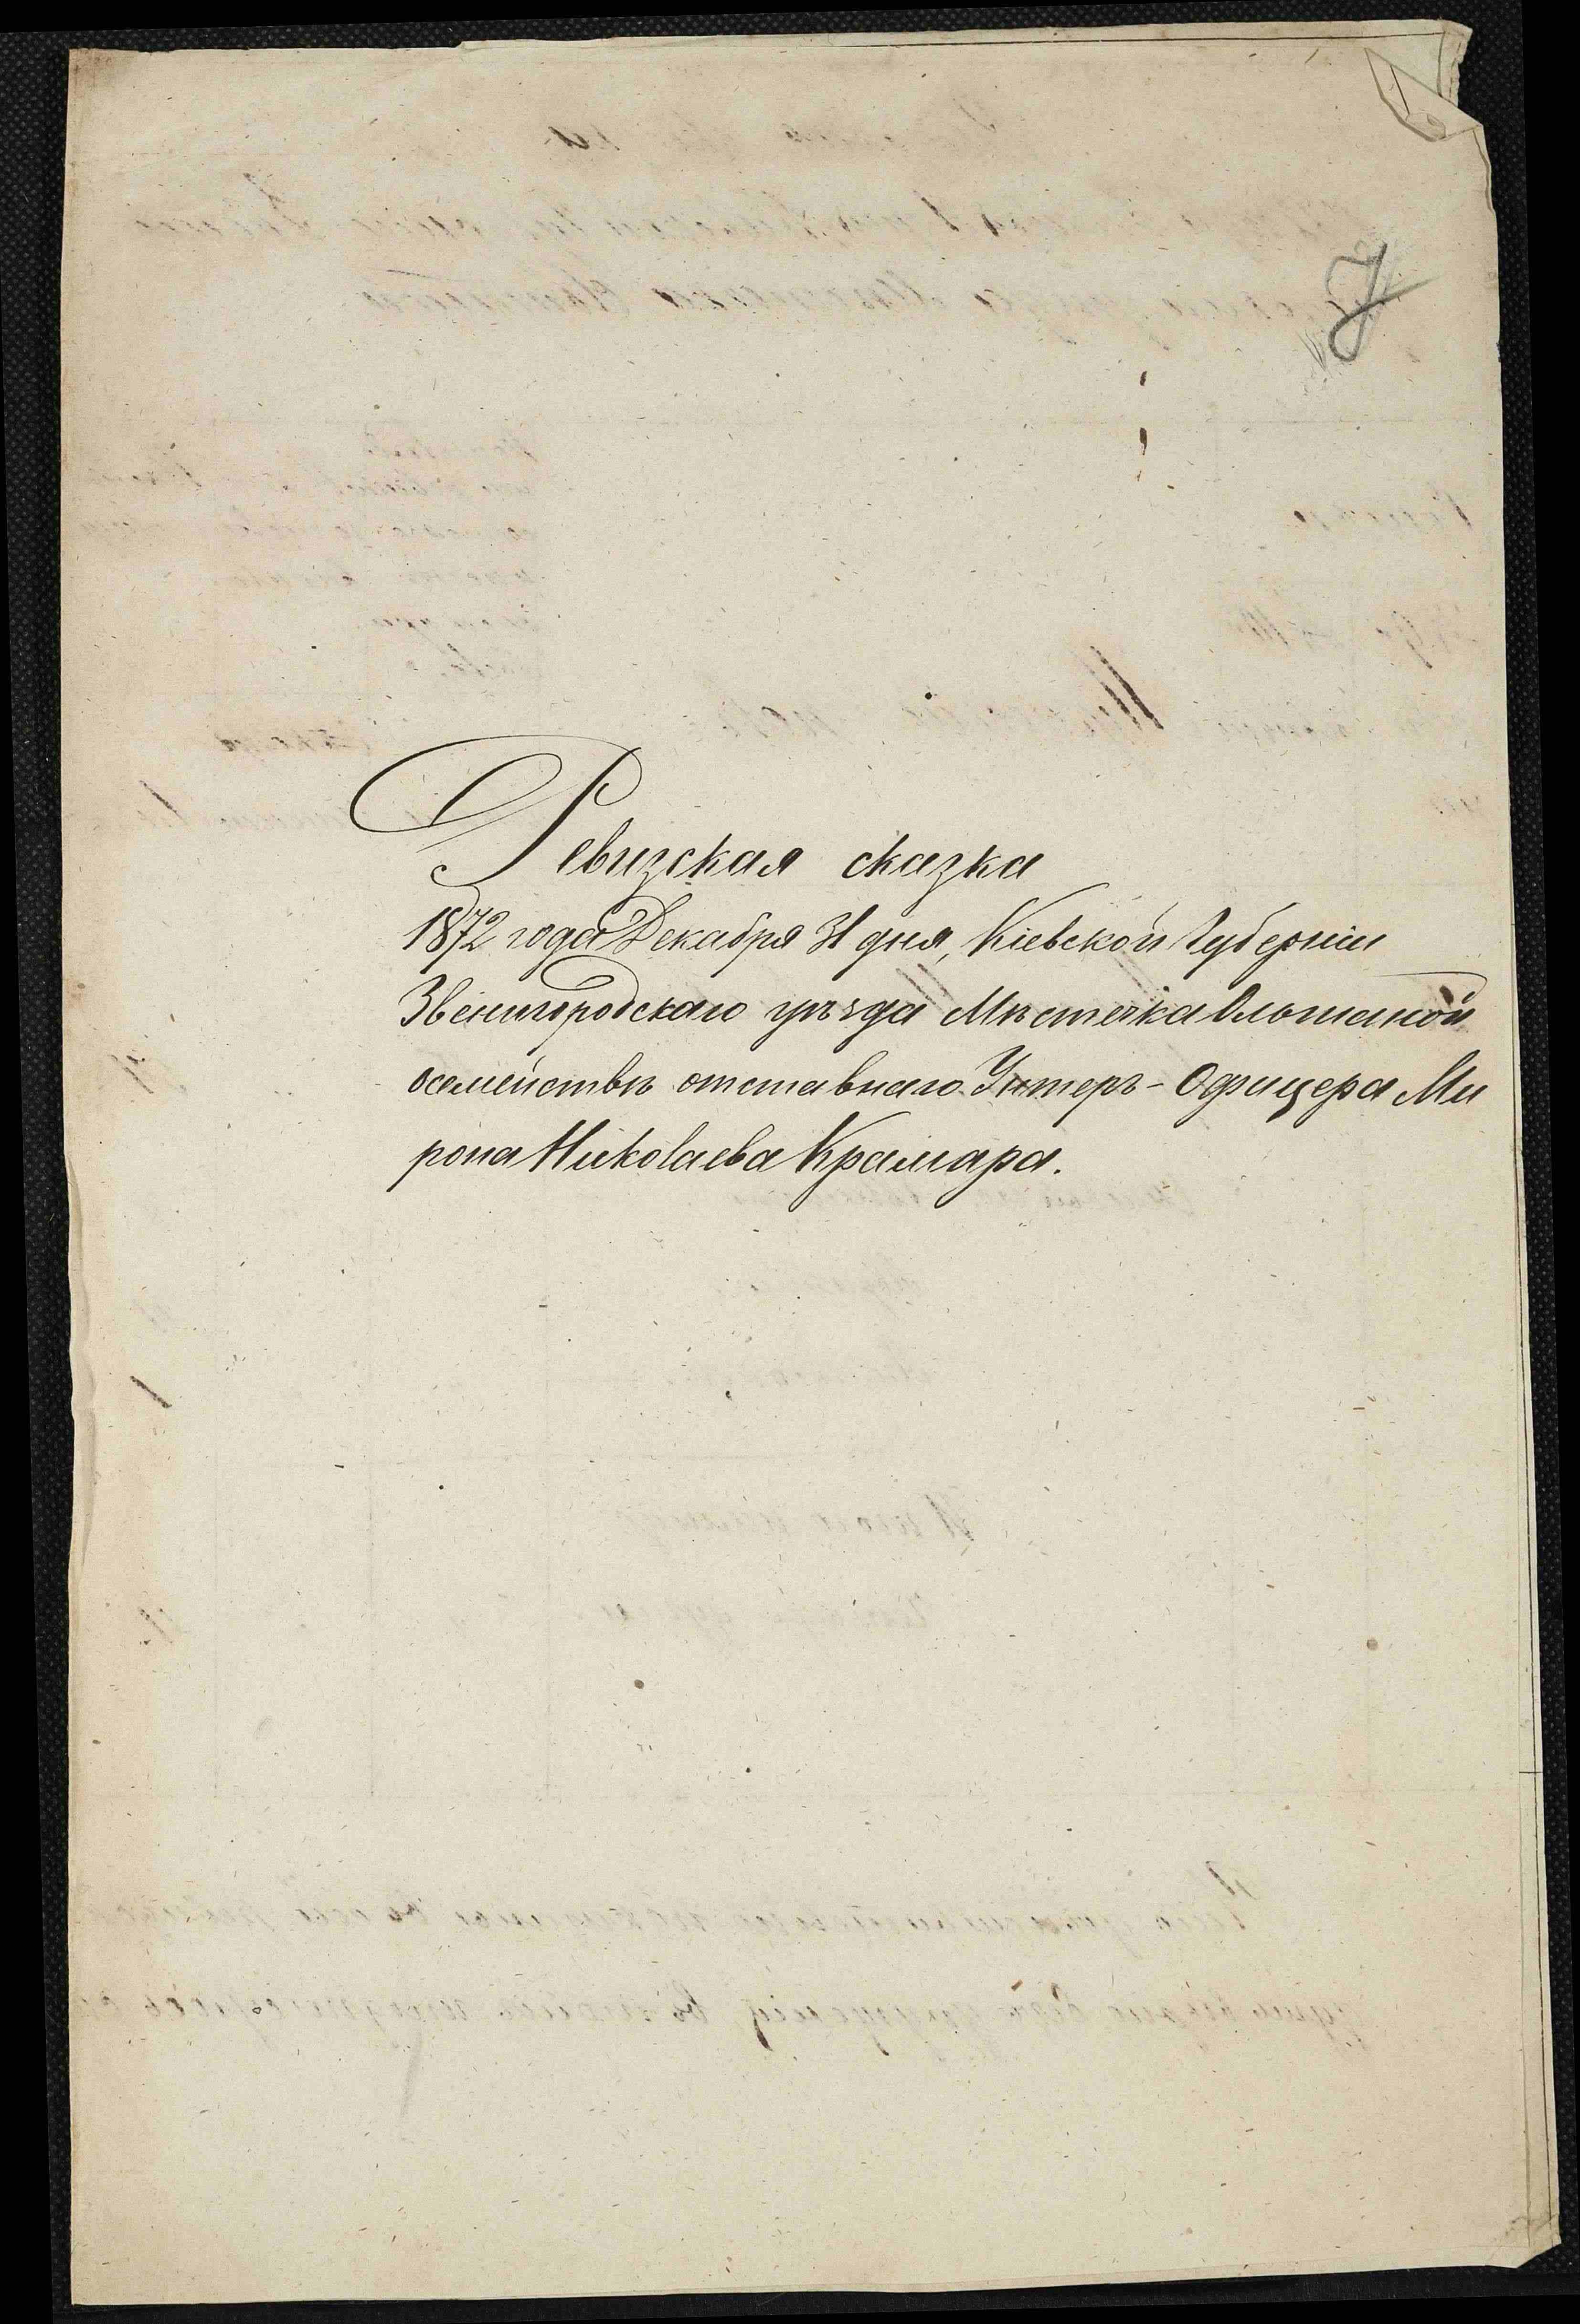 Ревизская сказка
1872 года Декабря 31 дня, Кіевской Губерніи
Звенигородскаго уѣзда Мѣстечка Ольшаной
осемействѣ отставнаго Унтеръ-Офицера Ми
рона Николаева Крамара.